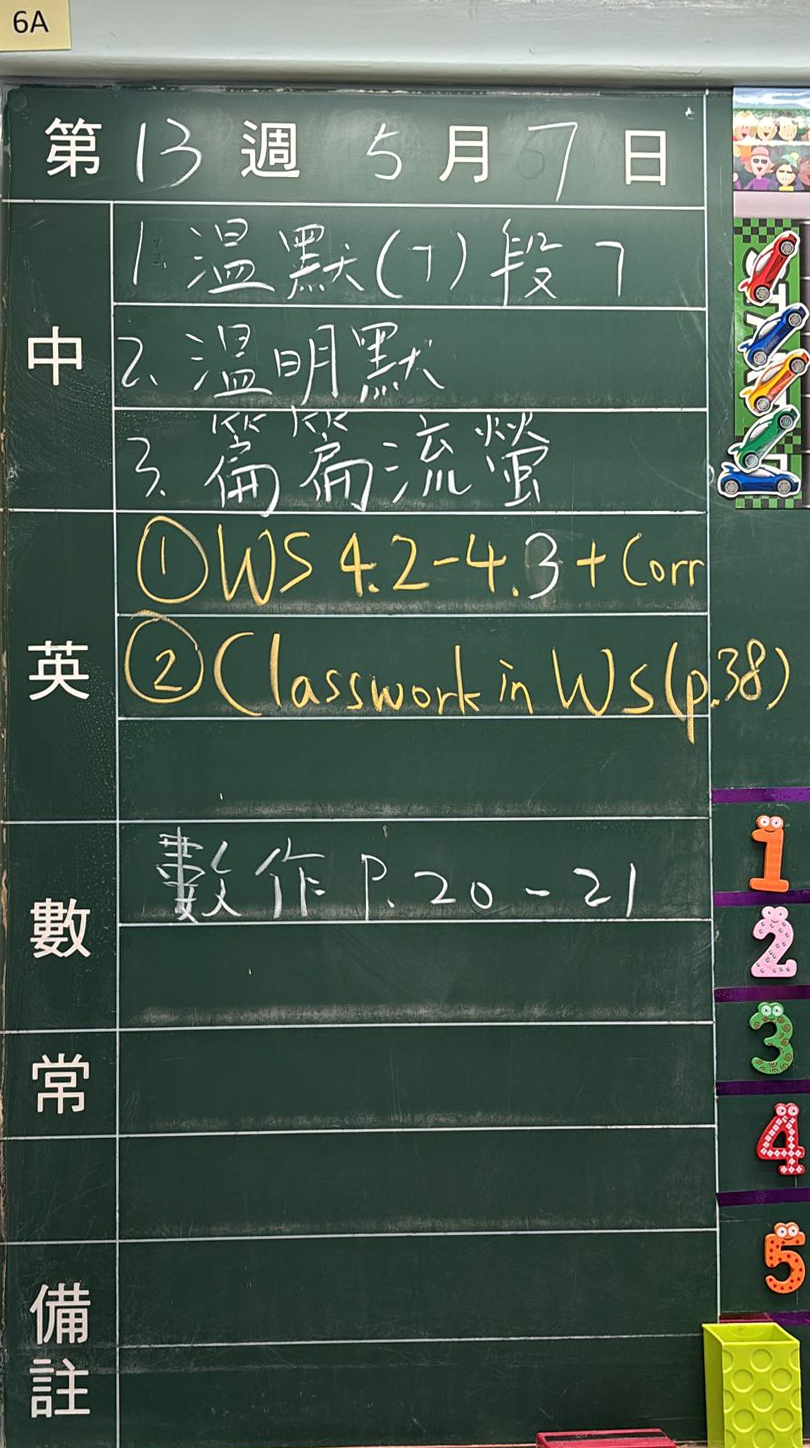 6A
第13週 5月7日
中
1. 溫默(7)段7
2. 溫明默
3. 篇篇流螢
英
①WS 4.2-4.3 + Corr
②Classwork in WS (p.38)
數
數作 P. 20 - 21
常
備註
1
2
3
4
5